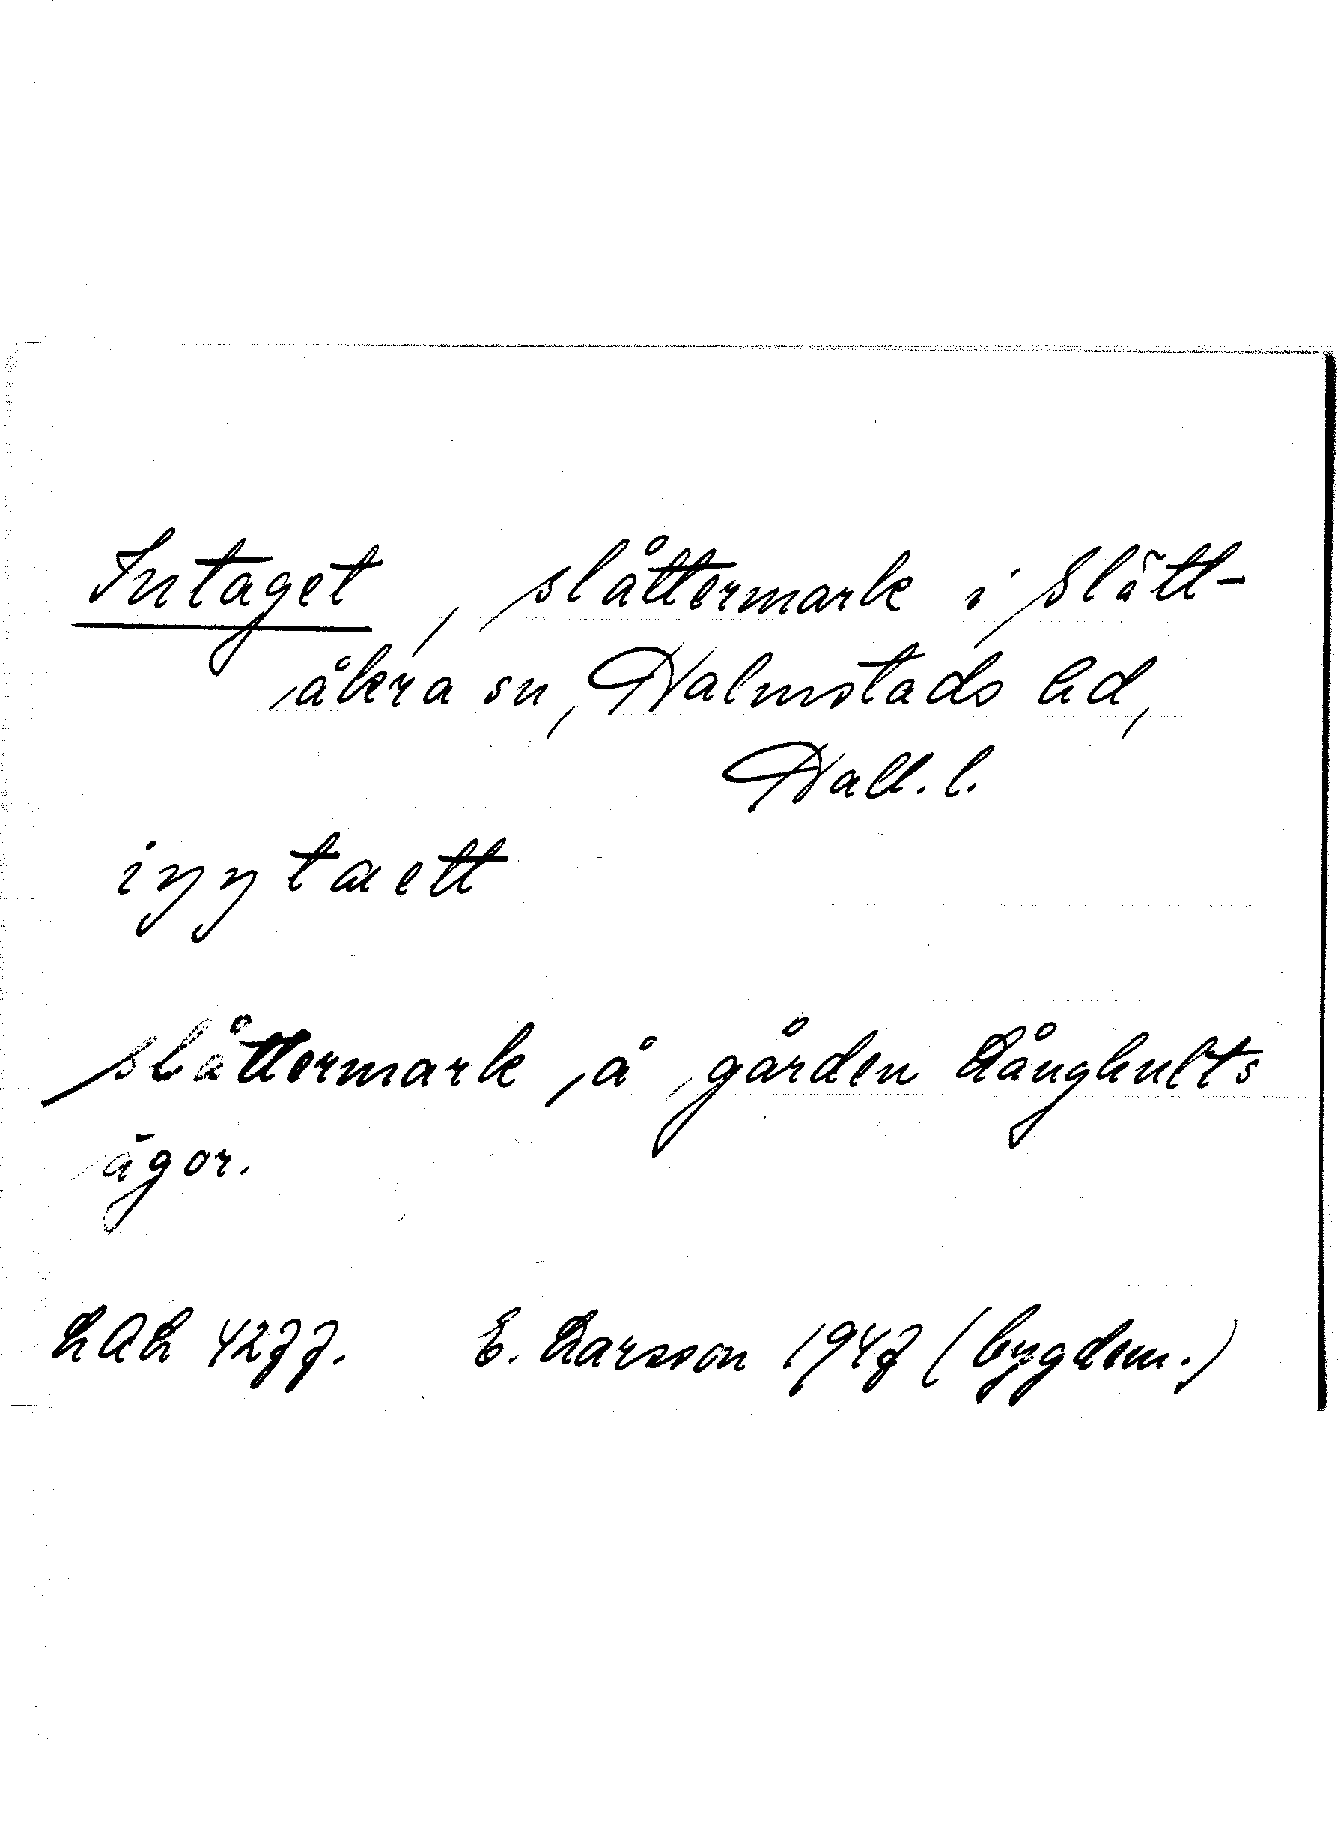 Intaget, slåttermark i Slätt-
åkra sn, Halmstads hd,
Hall. l.
iŋŋtaett
slåttermark å gården Långhults
ägor.
LAL 4277. E. Larsson 1947 (bygdem.)